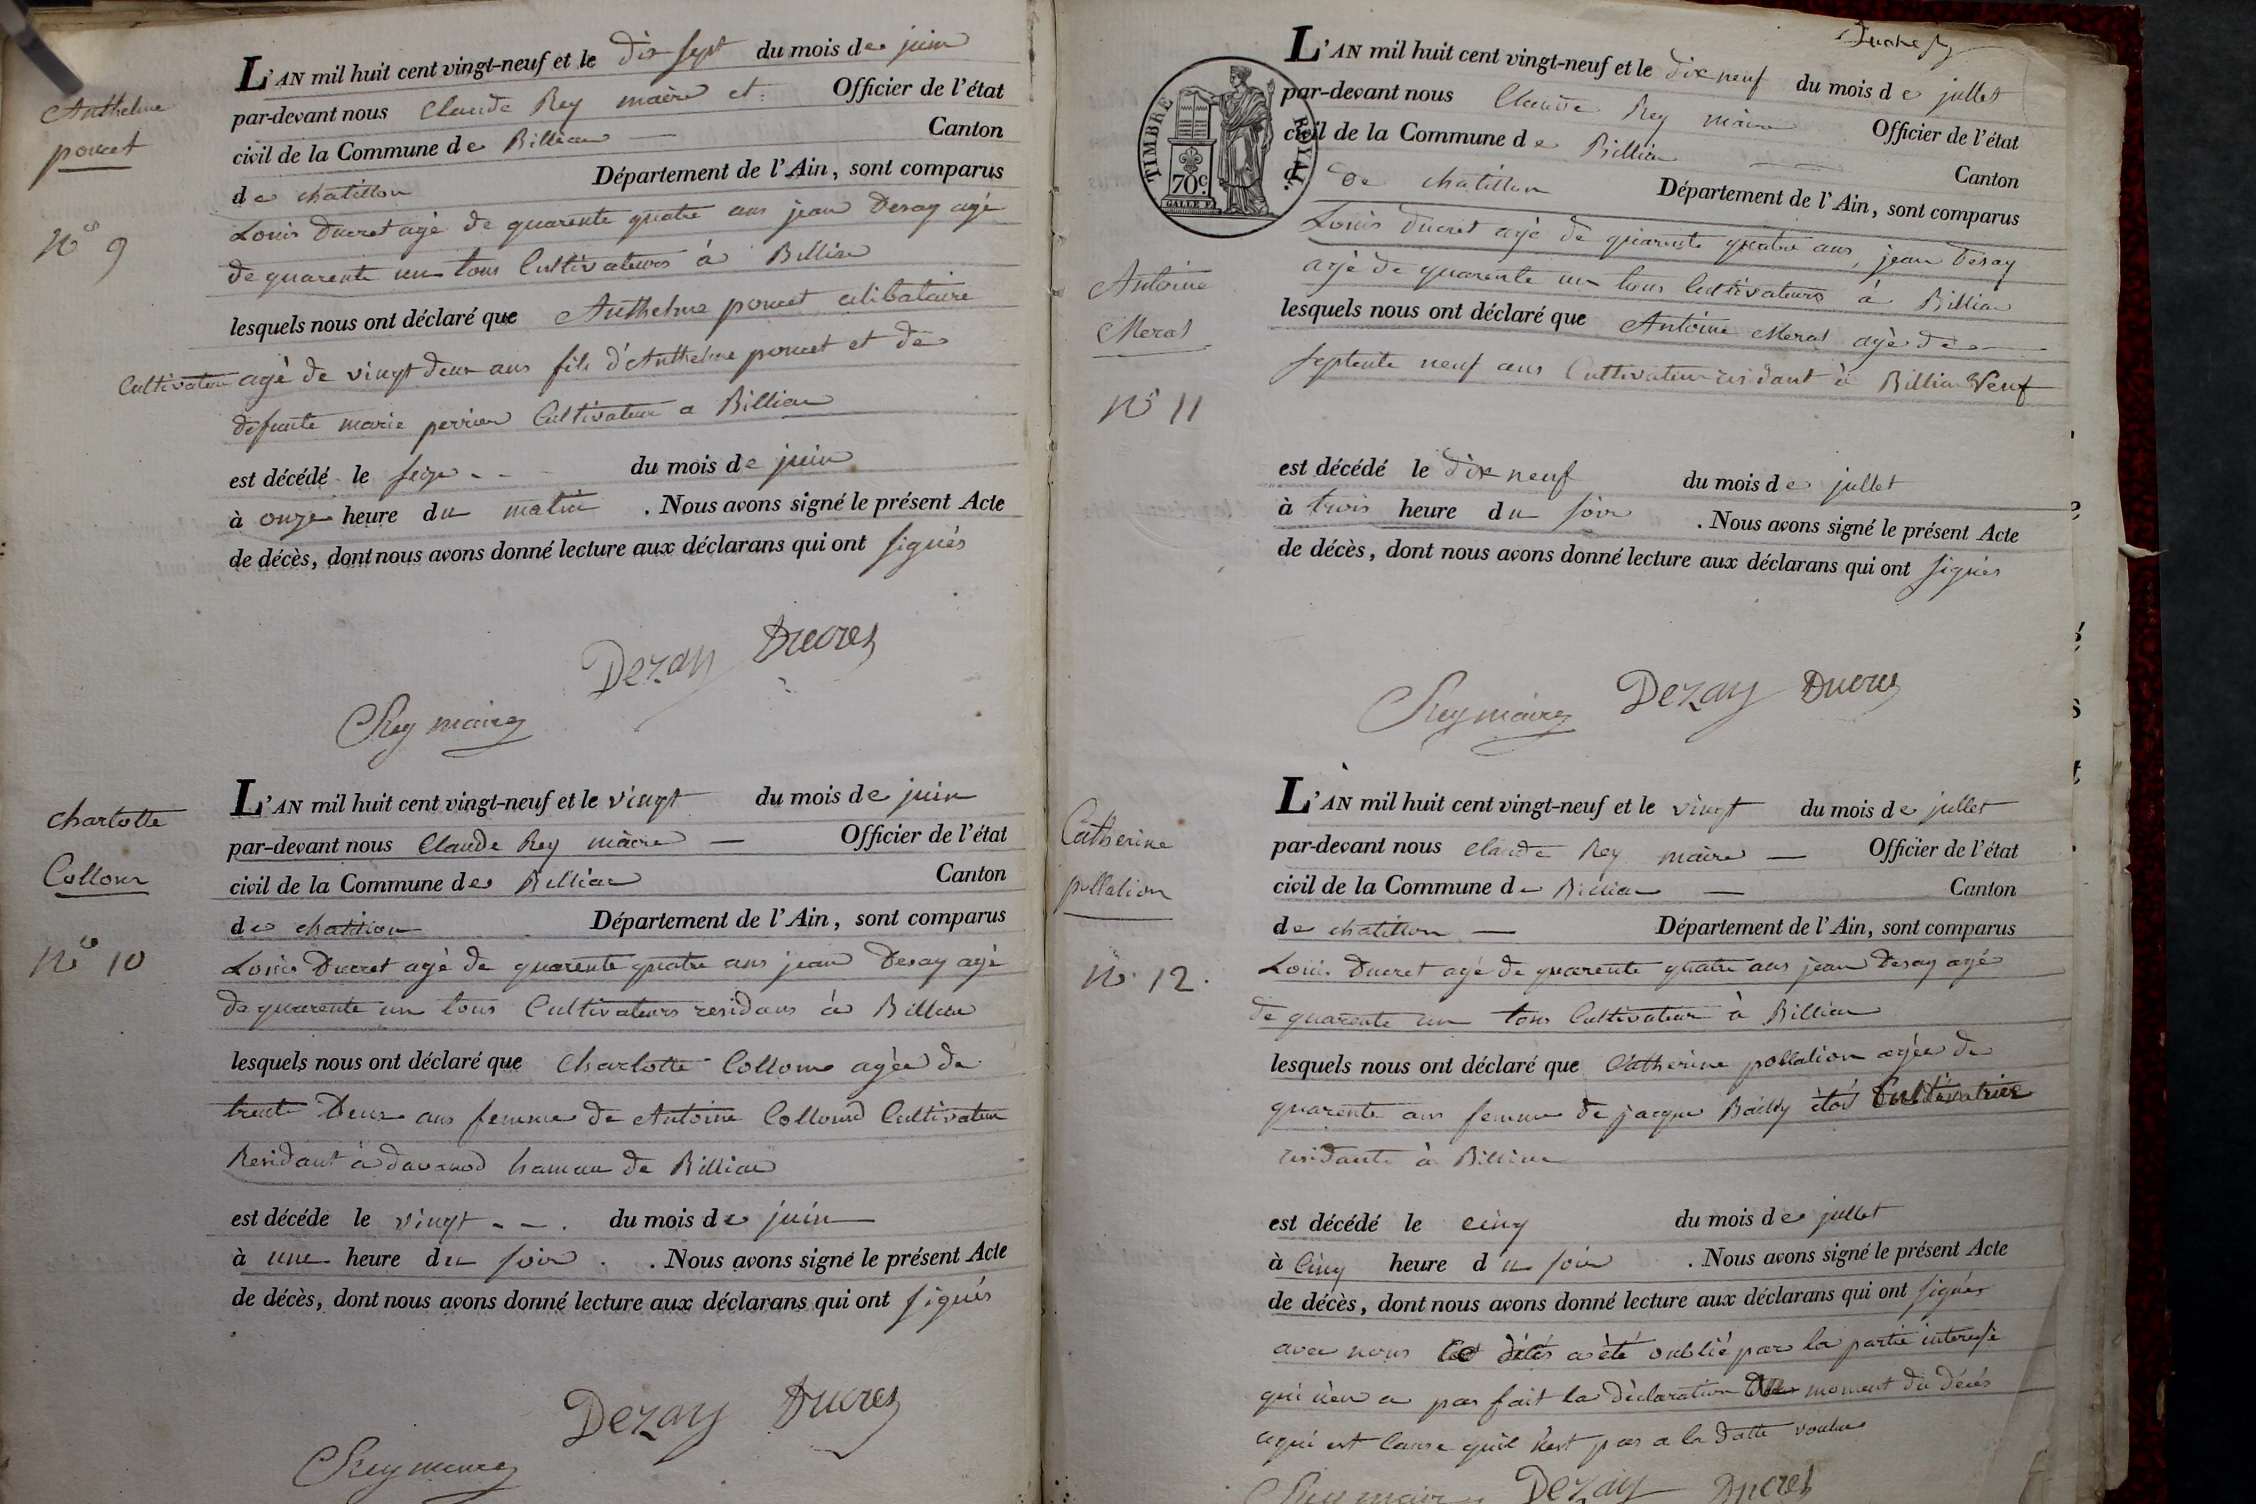 Anthelme
poncet
N° 9
L'AN mil huit cent vingt-neuf et le dix sept du mois de juin
par-devant nous Claude Rey maire et Officier de l'état
civil de la Commune de Billiau Canton
de chatillon Département de l'Ain, sont comparus
Louis Ducret agé de quarente quatre ans jean Desay agé
de quarente un tous Cultivateurs à Billiau
lesquels nous ont déclaré que Anthelme poncet celibataire
Cultivateur agé de vingt deux ans fils d'Anthelme poncet et de
defunte marie perrier Cultivateur a Billiau
est décédé le seize du mois de juin
à onze heure du matin . Nous avons signé le présent Acte
de décès, dont nous avons donné lecture aux déclarans qui ont signés
Dezay Ducret
CRey maire
charlotte
Collom
N° 10
L'AN mil huit cent vingt-neuf et le vingt du mois de juin
par-devant nous Claude Rey maire — Officier de l'état
civil de la Commune de Billiau Canton
de chatillon Département de l'Ain, sont comparus
Louis Ducret agé de quarente quatre ans jean Desay agé
de quarente un tous Cultivateurs residans à Billiau
lesquels nous ont déclaré que charlotte Collom agée de
trente Deux ans femme de Antoine Collomd Cultivateur
Residant à davanod hamau de Billiau
est décéde le vingt - - . du mois de juin
à une heure du soir . . Nous avons signé le présent Acte
de décès, dont nous avons donné lecture aux déclarans qui ont signés
Dezay Ducret
CRey maire
TIMBRE ROYAL.
70c.
GALLE F.
Antoine
Meral
N° 11
L'AN mil huit cent vingt-neuf et le dix neuf du mois de jullet
par-devant nous Claude Rey maire Officier de l'état
civil de la Commune de Billiau Canton
de chatillon Département de l'Ain, sont comparus
Louis Ducret agé de quarente quatre ans, jean Desay
agé de quarente un tous Cultivateurs à Billiau
lesquels nous ont déclaré que Antoine Meral agé de
septente neuf ans Cultivateur residant à Billiau Veuf
est décédé le dix neuf du mois de jullet
à trois heure du soir . Nous avons signé le présent Acte
de décès, dont nous avons donné lecture aux déclarans qui ont signés
CRey maire Dezay Ducret
Catherine
pollation
N° 12.
L'AN mil huit cent vingt-neuf et le vingt du mois de jullet
par-devant nous Claude Rey maire — Officier de l'état
civil de la Commune de Billiau — Canton
de chatillon — Département de l'Ain, sont comparus
Louis Ducret agé de quarente quatre ans jean Desay agé
de quarente un tous Cultivateur à Billiau
lesquels nous ont déclaré que Catherine pollation agée de
quarente ans femme de jacque Bailly Cultivatrice
residante à Billiau
est décédé le cinq du mois de jullet
à Cinq heure du soir . Nous avons signé le présent Acte
de décès, dont nous avons donné lecture aux déclarans qui ont signés
avec nous Ce décés a été oublié par la partie interessé
qui n'en a pas fait la déclaration au moment du décés
cequi est Cause quil n'est pas a la datte voulue
CRey maire Dezay Ducret